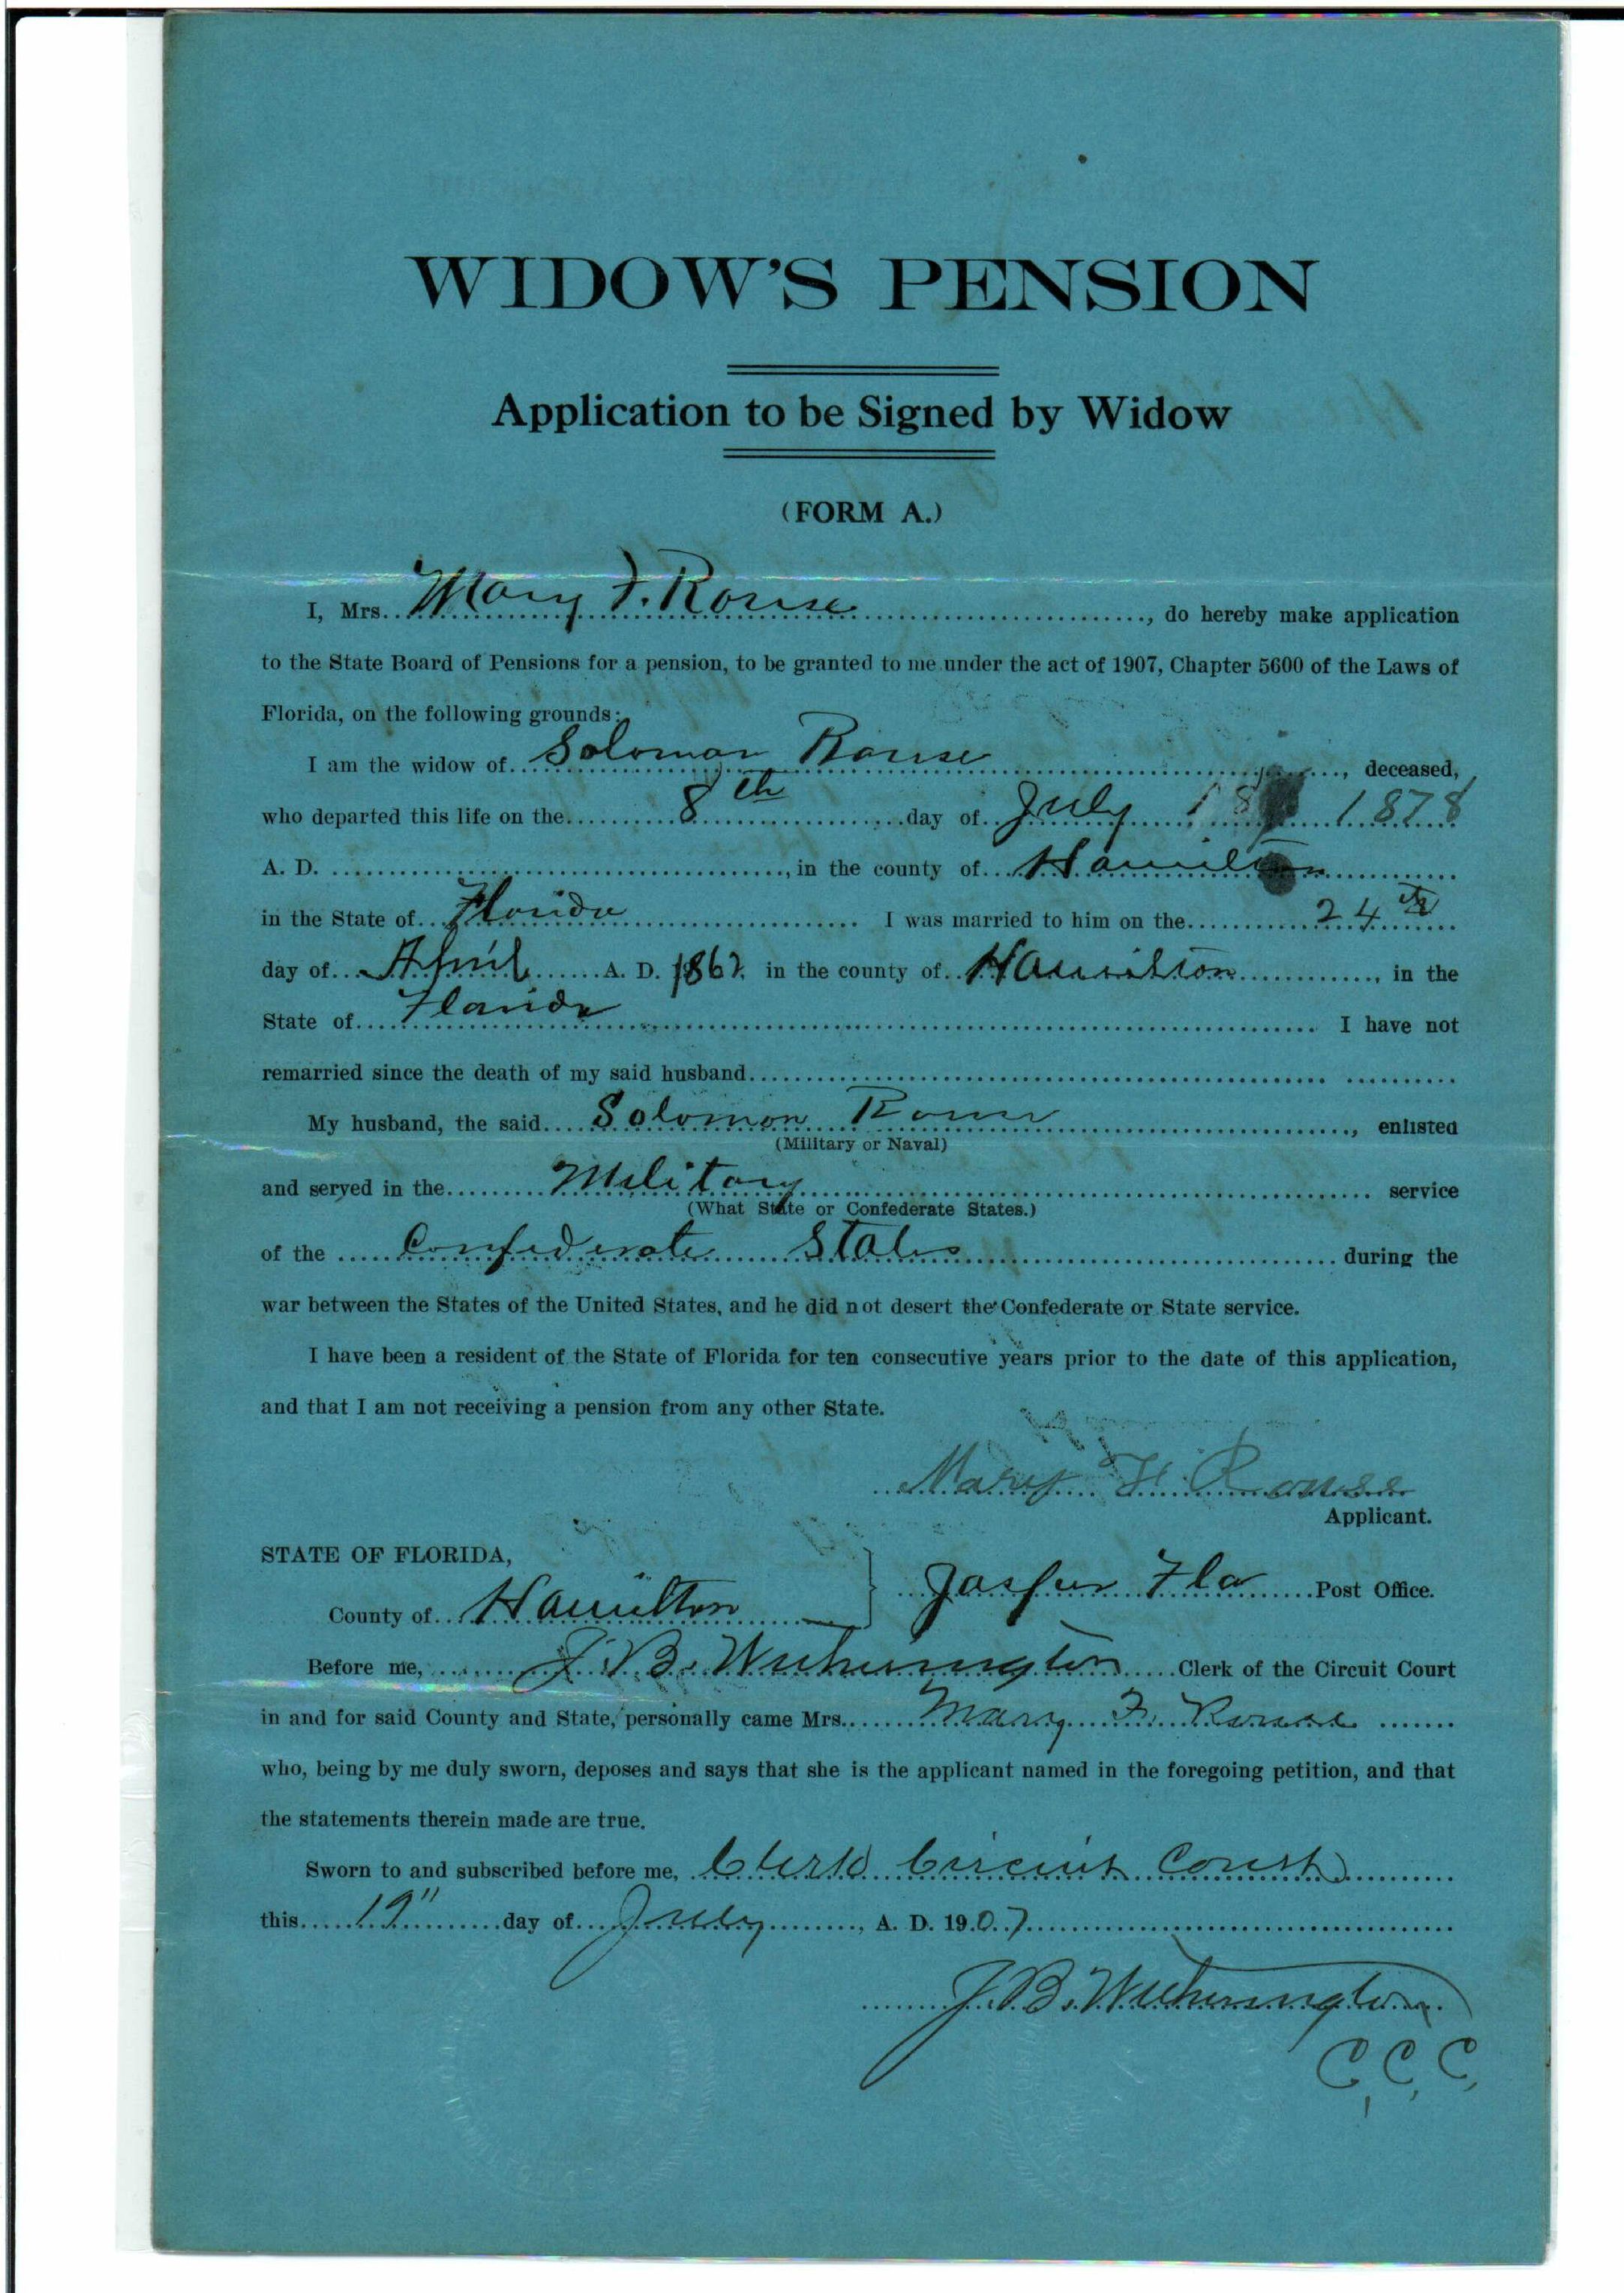 WIDOW'S PENSION
Application to be Signed by Widow
(FORM A.)
I, Mrs. Mary F. Rouse, do hereby make application
to the State Board of Pensions for a pension, to be granted to me under the act of 1907, Chapter 5600 of the Laws of
Florida, on the following grounds:
I am the widow of Soloman Rouse, deceased,
who departed this life on the 8th day of July 18 1878
A. D. , in the county of Hamilton
in the State of Florida I was married to him on the 24th
day of April A. D. 1862 in the county of Hamilton, in the
State of Florida I have not
remarried since the death of my said husband
My husband, the said Solomon Rouse, enlisted
(Military or Naval)
and served in the Military service
(What State or Confederate States.)
of the Confederate States during the
war between the States of the United States, and he did not desert the Confederate or State service.
I have been a resident of the State of Florida for ten consecutive years prior to the date of this application,
and that I am not receiving a pension from any other State.
Mary F. Rouse
Applicant.
STATE OF FLORIDA,
County of Hamilton
Jasper Fla Post Office.
Before me, J. B. Witherington Clerk of the Circuit Court
in and for said County and State, personally came Mrs. Mary F. Rouse
who, being by me duly sworn, deposes and says that she is the applicant named in the foregoing petition, and that
the statements therein made are true.
Sworn to and subscribed before me, Clerk Circuit Court
this 19" day of July, A. D. 1907
J. B. Witherington
C. C. C.